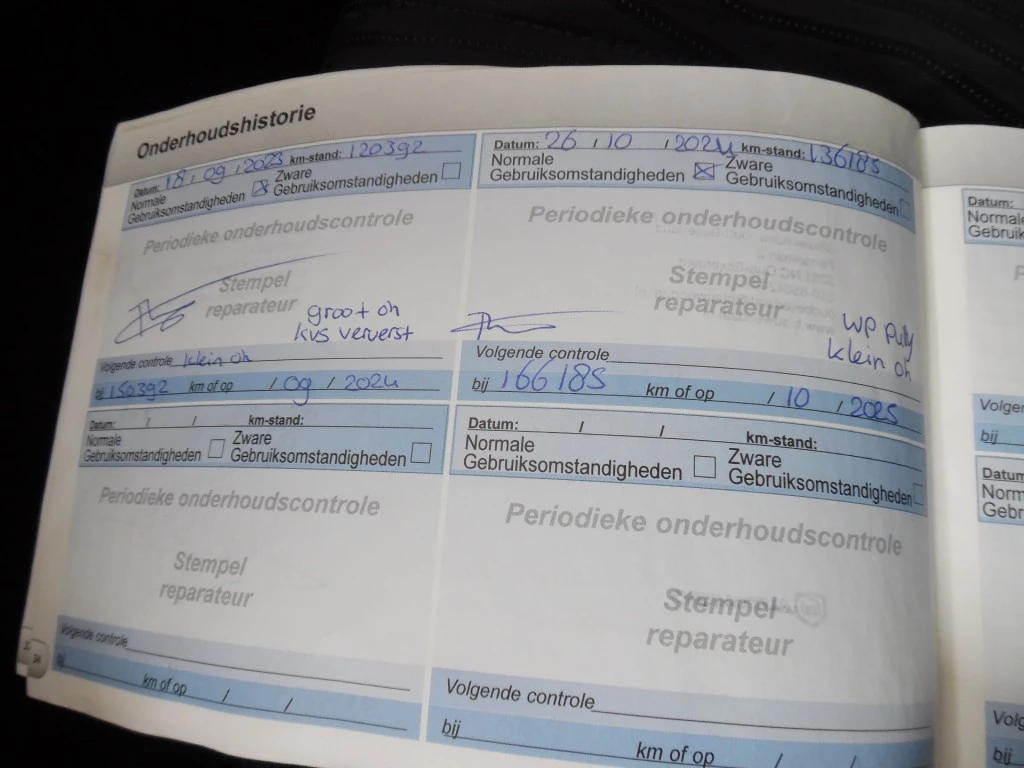 Onderhoudshistorie
Datum: 18 / 09 / 2023 km-stand: 120392
Normale Gebruiksomstandigheden ☒ Zware Gebruiksomstandigheden ☐
Periodieke onderhoudscontrole
Stempel
reparateur
groot oh
kvs ververst
Volgende controle klein oh
bij 150392 km of op / 09 / 2024
Datum: 26 / 10 / 2024 km-stand: 136185
Normale Gebruiksomstandigheden ☒ Zware Gebruiksomstandigheden ☐
Periodieke onderhoudscontrole
Stempel
reparateur
WP pully
klein oh
Volgende controle
bij 166185 km of op / 10 / 2025
Datum: / / km-stand:
Normale Gebruiksomstandigheden ☐ Zware Gebruiksomstandigheden ☐
Periodieke onderhoudscontrole
Stempel
reparateur
Volgende controle
bij km of op / /
Datum: / / km-stand:
Normale Gebruiksomstandigheden ☐ Zware Gebruiksomstandigheden ☐
Periodieke onderhoudscontrole
Stempel
reparateur
Volgende controle
bij km of op / /
34
Datum:
Normale
Gebruik
Volge
bij
Datum
Norm
Gebr
Volg
bij